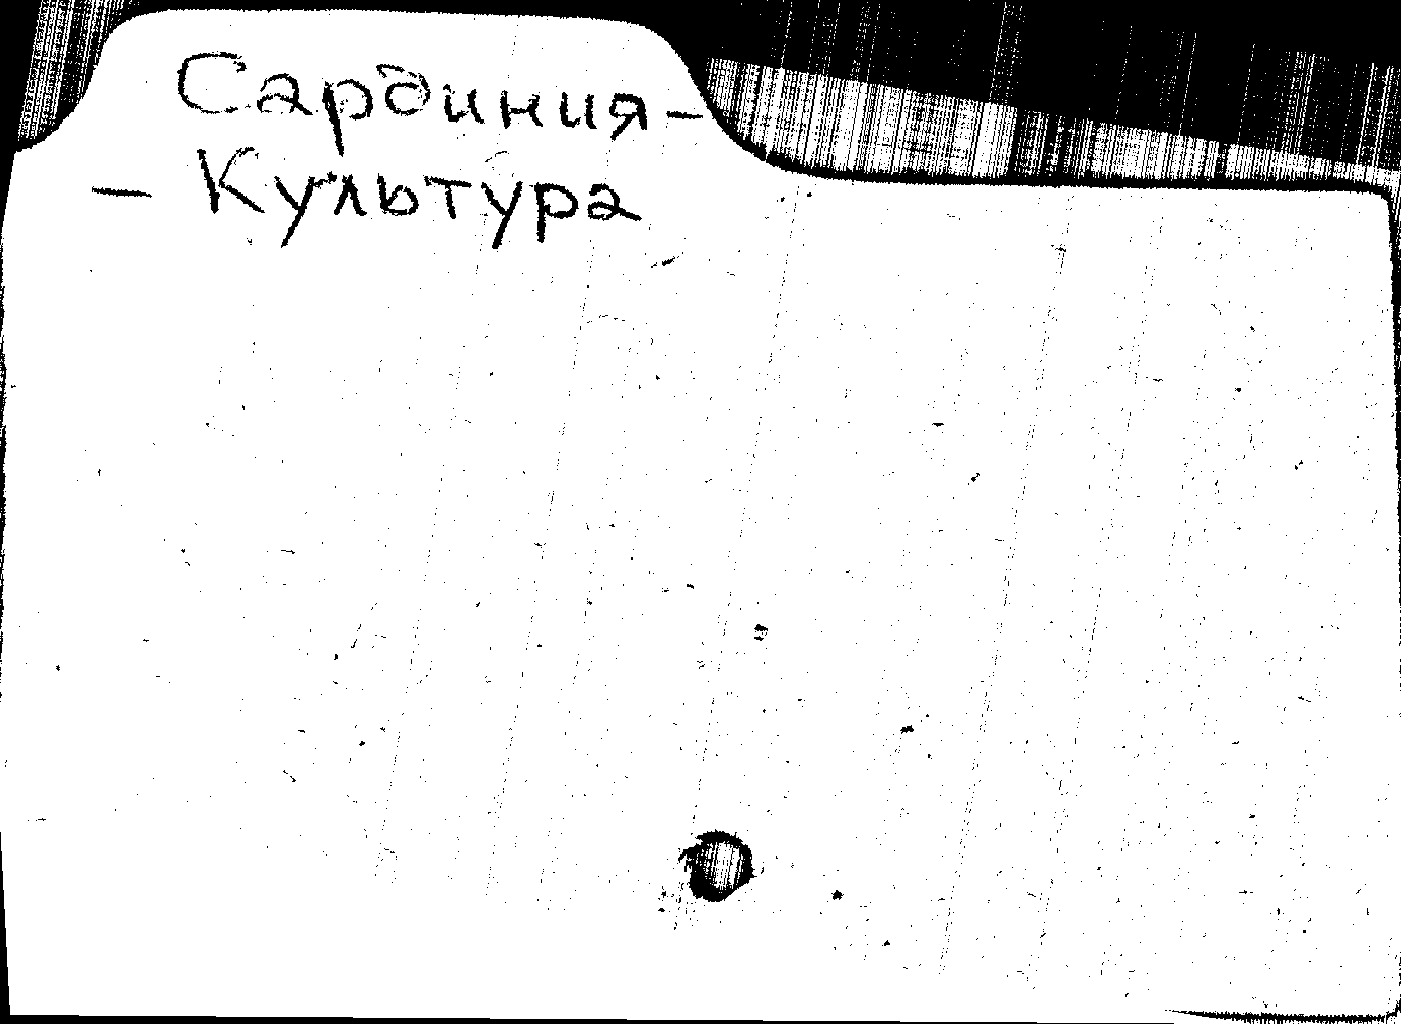 Сардиния-
- Культура